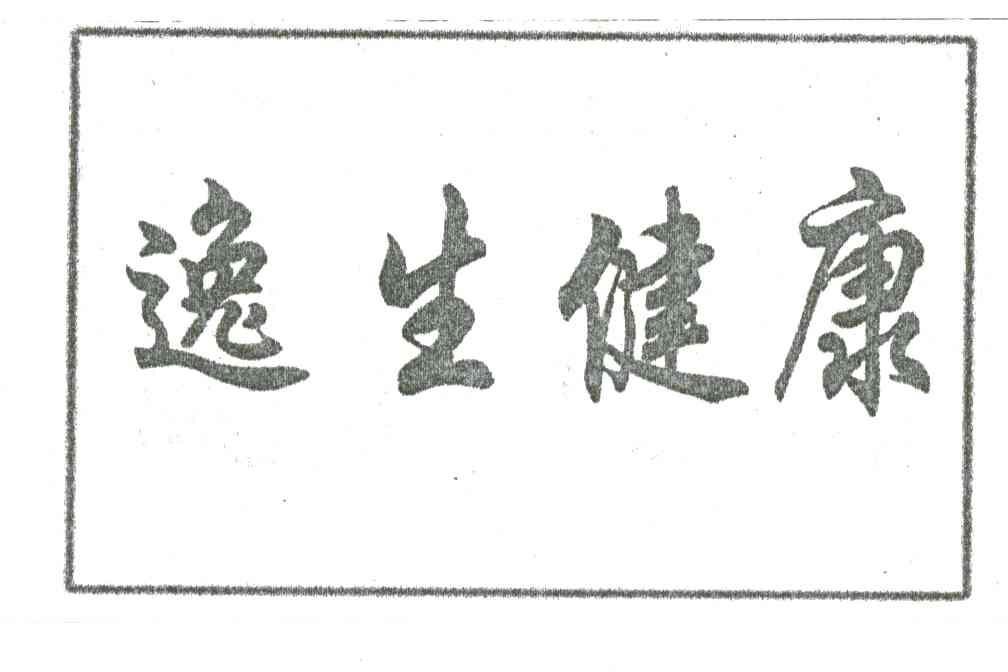 逸生健康